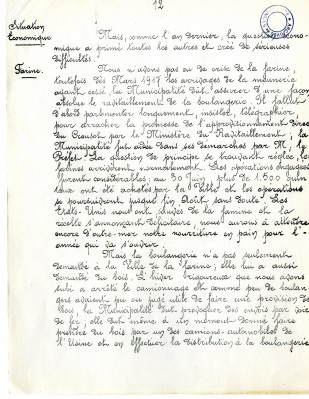 12
Situation
Economique
Mais, comme l'an dernier, la question écono-
mique a primé toutes les autres et créé de sérieuses
difficultés.
Farine.
Nous n'avons pas eu de crise de la farine;
toutefois dès Mars 1917 les arrivages de la meunerie
ayant cessé la Municipalité dut assurer d'une façon
absolue le ravitaillement de la boulangerie. Il fallut
d'abord parlementer longuement, insister, télégraphier
pour arracher la promesse de l'approvisionnement
du Creusot par le Ministère du Ravitaillement; la
Municipalité fut aidée dans ses démarches par M. le
Préfet. La question de principe se trouvant réglée, les
farines arrivèrent normalement. Les opérations
furent considérables; au 30 Juin plus de 1.600
ont été achetés par la Ville et les opérations
se poursuivront jusqu'fin Août sans doute. Les
Etats-Unis nous ont sauvés de la famine et la
récolte s'annonçant déficitaire, nous aurons à attendre
encore d'outre-mer notre nourriture en pain pour l'an-
née qui va s'ouvrir.
Mais la boulangerie n'a pas seulement
demandé à la Ville de la farine; elle lui a aussi
demandé du bois. L'hiver rigoureux que nous avons
subi a arrêté le camionnage et comme peu de boulan-
gers avaient pu ou jugé utile de faire une provision de
bois, la Municipalité dut provoquer des envois par voie
de fer, elle dut même à un moment donné faire
prendre du bois par un des camions-automobiles de
l'Usine et en effectuer la distribution à la boulangerie